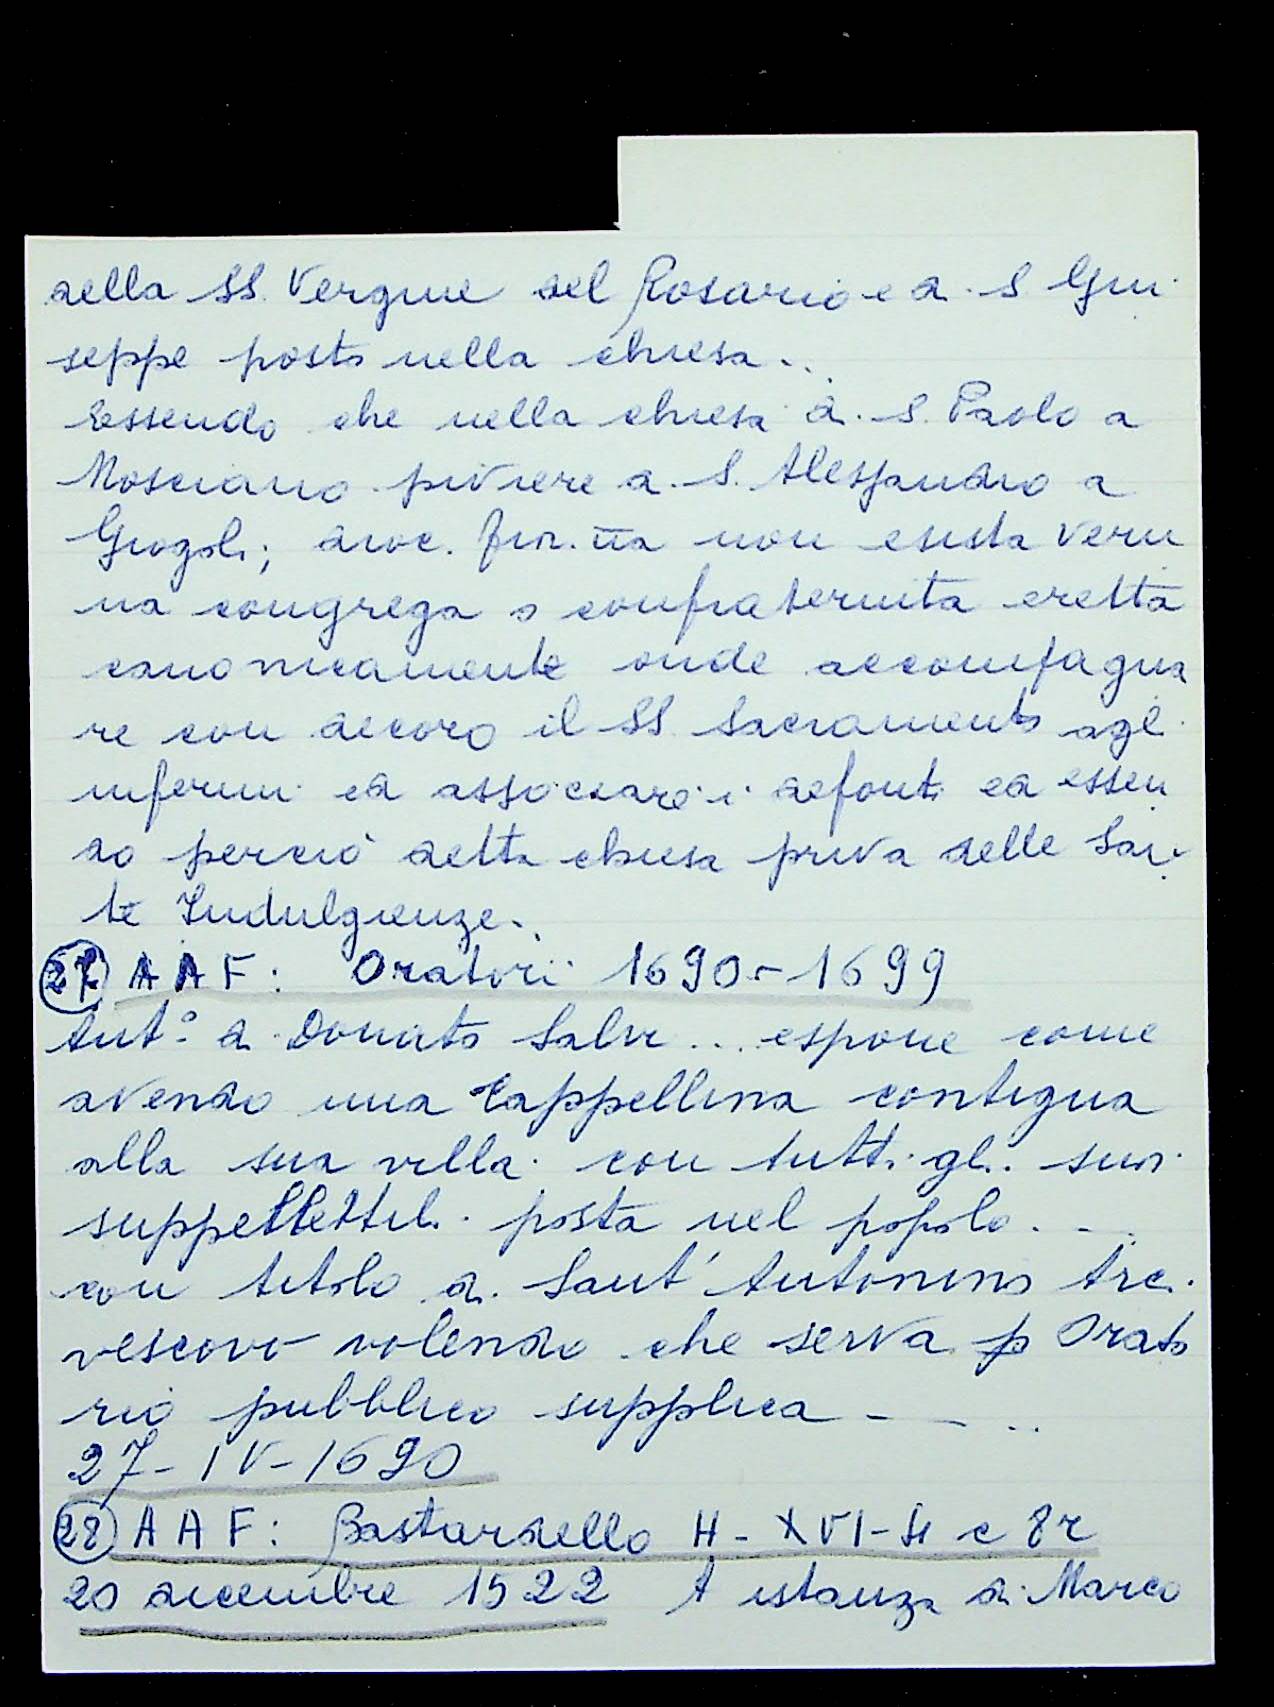 della SS. Vergine del Rosario e di S Giu
seppe posto nella chiesa..
Essendo che nella chiesa di S. Paolo a
Mosciano piviere di S. Alessandro a
Giogoli; dioc. fior.na non esista veru
na congrega o confraternita eretta
canonicamente onde accompagna
re con decoro il SS Sacramento agl'
infermi ed associare i defonti ed essen
do perciò detta chiesa priva delle San
te Indulgienze..
27 AAF: Oratorii 1690-1699
Ant.° di Donato Salvi ... espone come
avendo una Cappellina contigua
alla sua villa con tutti gli suoi
suppellettili posta nel popolo ...
con titolo di Sant'Antonino Arci
vescovo volendo che serva p Orato
rio pubblico supplica - - ..
27-IV-1690
28 AAF: Bastardello H-XVI-4 c 8r
20 dicembre 1522 A istanza di Marco